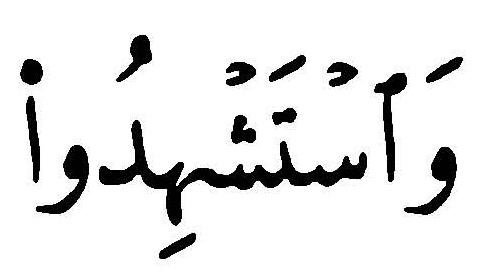 وَٱسْتَشْهِدُوا۟